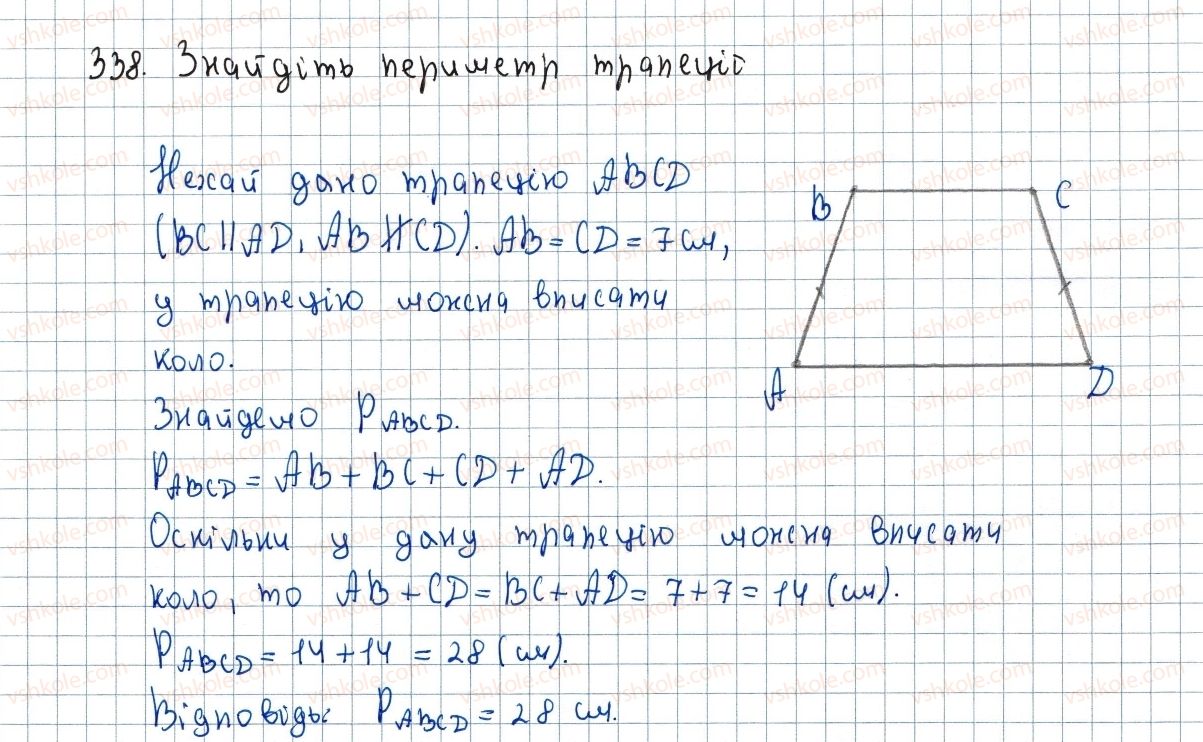 338. Знайдіть периметр трапеції
Нехай дано трапецію ABCD
(BC || AD, AB ∦ CD). AB = CD = 7 см,
у трапецію можна вписати
коло.
Знайдемо P_ABCD.
P_ABCD = AB + BC + CD + AD.
Оскільки у дану трапецію можна вписати
коло, то AB + CD = BC + AD = 7 + 7 = 14 (см).
P_ABCD = 14 + 14 = 28 (см).
Відповідь: P_ABCD = 28 см.
B
C
A
D
vshkole.com